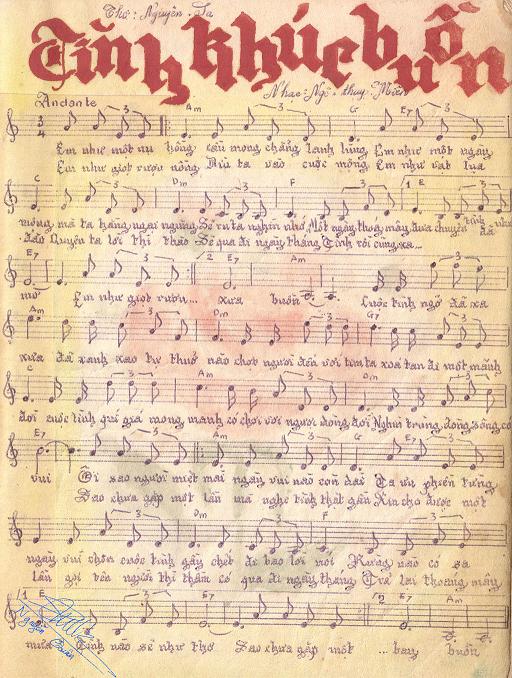 Thơ: Nguyên-Sa
Tình khúc buồn
Nhạc: Ngô-thụy-Miên
Andante
3 Am 3 G E7 3
3 4
Em như một nụ hồng cầu mong chẳng lạnh lùng Em như một ngày
Em như giọt rượu nồng Đưa ta vào cuộc mộng Em như vạt lụa
C 3 Dm 3 F 3 1 E 3
mong mà ta hằng ngại ngùng Sẽ ru ta nghìn nhớ Một ngày thoáng mây đưa chuyện tình
đào Quyện ta lời thì thào Sẽ qua đi ngày tháng Tình rồi cũng xa...
E7 2 E Am 3
mơ Em như giọt rượu... xưa buồn Cuộc tình ngỡ đã xa
Am 3 Dm 3 G7 3
xưa đã xanh xao từ thuở nào chợt người đến với tim ta xoá tan đi một mảnh
C 3 Am 3 Dm 3
đời cuộc tình quí giá mong manh có chơi vơi người
E7 3 Am 3 G E7 3
vui Ôi sao người miệt mài ngày vui nào còn dài Ta ưu phiền từng
Sao chưa gặp một lần mà nghe tình thật gần Xin cho được một
3 Dm 3 F 3
ngày vui chôn cuộc tình gầy chết đi bao lời nói Rừng nào có sa
lần gọi tên người thì thầm có qua đi ngày tháng Trả lại thoáng mây
1 E E7 3 2 E Am
mưa Tình nào sẽ như thơ Sao chưa gặp một ... bay buồn